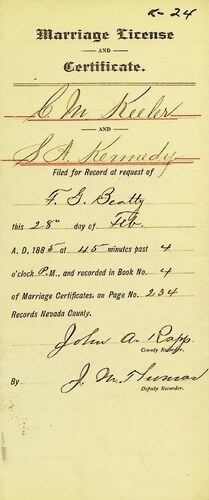 R-24
Marriage License
AND
Certificate.
C. M. Keeler
AND
S. A. Kennedy
Filed for Record at request of
F. G. Beatty
this 28th day of Feb.
A. D. 1885 at 45 minutes past 4
o'clock P.M., and recorded in Book No. 4
of Marriage Certificates, on Page No. 234
Records Nevada County.
John A. Rapp
County Recorder.
By J. M. Thomas
Deputy Recorder.